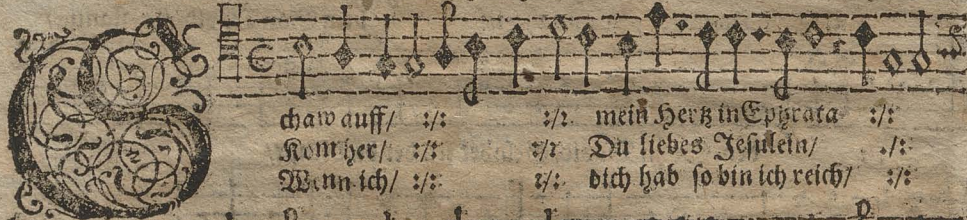 Schaw auff/ :/: :/: mein Hertz in Ephrata :/:
Kom her/ :/: :/: Du liebes Jesulein/ :/:
Wenn ich/ :/: :/: dich hab so bin ich reich/ :/: